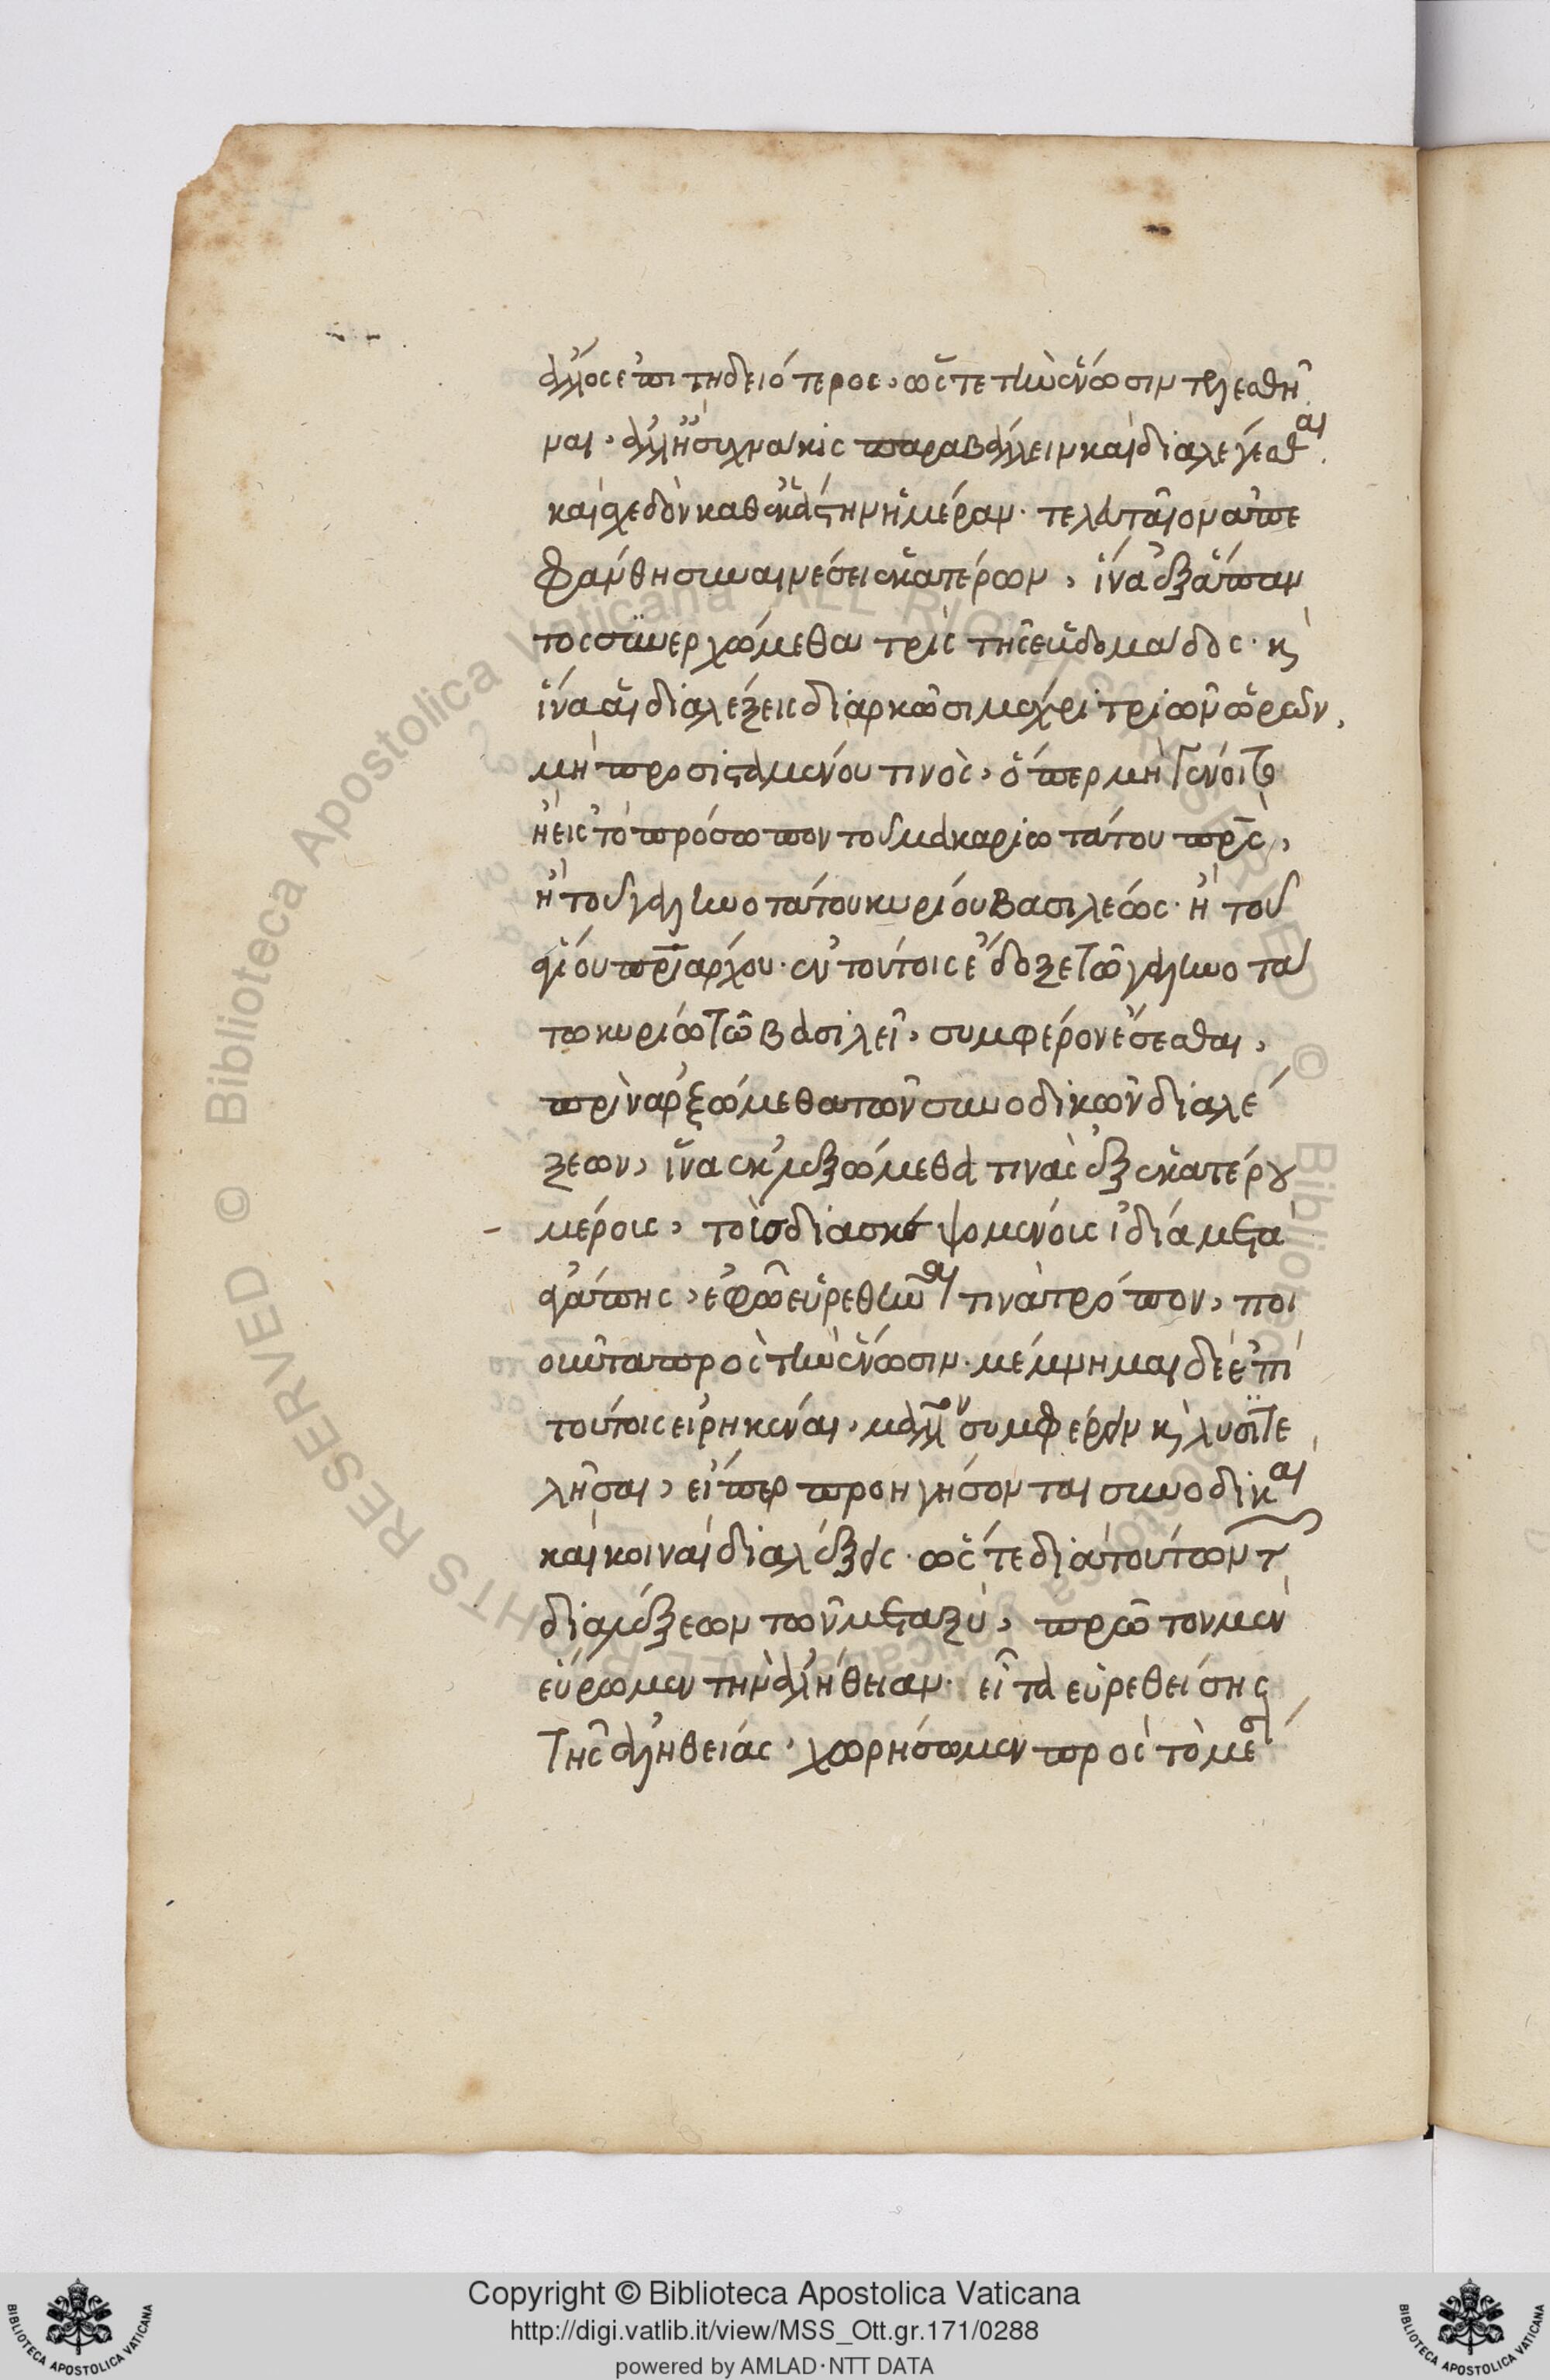 ἄλλος ἐπιτηδειότερος, ὥστε τὴν ἕνωσιν τελεσθῆ
ναι, ἀλλ' ἢ συχνάκις παραβάλλειν καὶ διαλέγεσθαι
καὶ σχεδὸν καθεκάστην ἡμέραν. τελευταῖον ἀπε
φάνθη συναινέσει ἑκατέρων, ἵνα ἐξάπαν
τος συνερχώμεθα τρὶς τῆς ἑβδομάδος. κ
ἵνα αἱ διαλέξεις διαρκῶσι μέχρι τριῶν ὡρῶν,
μὴ προσισταμένου τινὸς, ὅπερ μὴ γένοιτο
ἢ εἰς τὸ πρόσωπον τοῦ μακαριωτάτου πρς,
ἢ τοῦ γαληνοτάτου κυρίου βασιλέως. ἢ τοῦ
ἁγίου πριάρχου. ἐν τούτοις ἔδοξε τῶ γαληνοτά
τω κυρίω τῶ βασιλεῖ, συμφέρον ἔσεσθαι,
πρὶν ἀρξώμεθα τῶν συνοδικῶν διαλέ
ξεων, ἵνα ἐκλεξώμεθά τινας ἐξ ἑκατέρου
μέροις, τοῖς διασκεψομένοις ἰδία μετα
ἀγάπης, ἐφῶ εὑρεθῆναι τινὰ τρόπον, ποι
οῦντα πρὸς τὴν ἕνωσιν. μέμνημαι δὲ ἐπὶ
τούτοις εἰρηκέναι, μᾶλλον συμφέρειν κ λυσιτε
λῆσαι, εἴπερ προηγήσονται συνοδικαὶ
καὶ κοιναὶ διαλέξεις. ὥστε διὰ τούτων τ
διαλέξεων τῶν μεταξὺ, πρῶτον μὲν
εὕρωμεν τὴν ἀλήθειαν. εἶτα εὑρεθείσης
τῆς ἀληθείας, χωρήσωμεν πρὸς τὸ μέσ
Copyright © Biblioteca Apostolica Vaticana
http://digi.vatlib.it/view/MSS_Ott.gr.171/0288
powered by AMLAD·NTT DATA